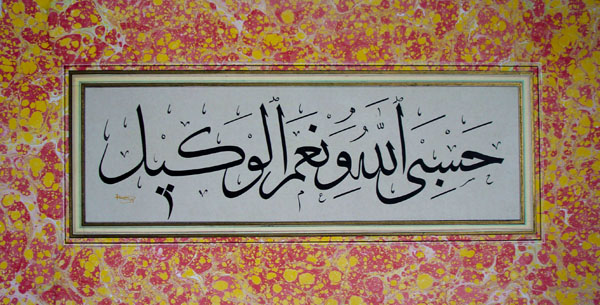 حَسْبِىَ ٱللّٰهُ وَنِعْمَ ٱلْوَكِيل